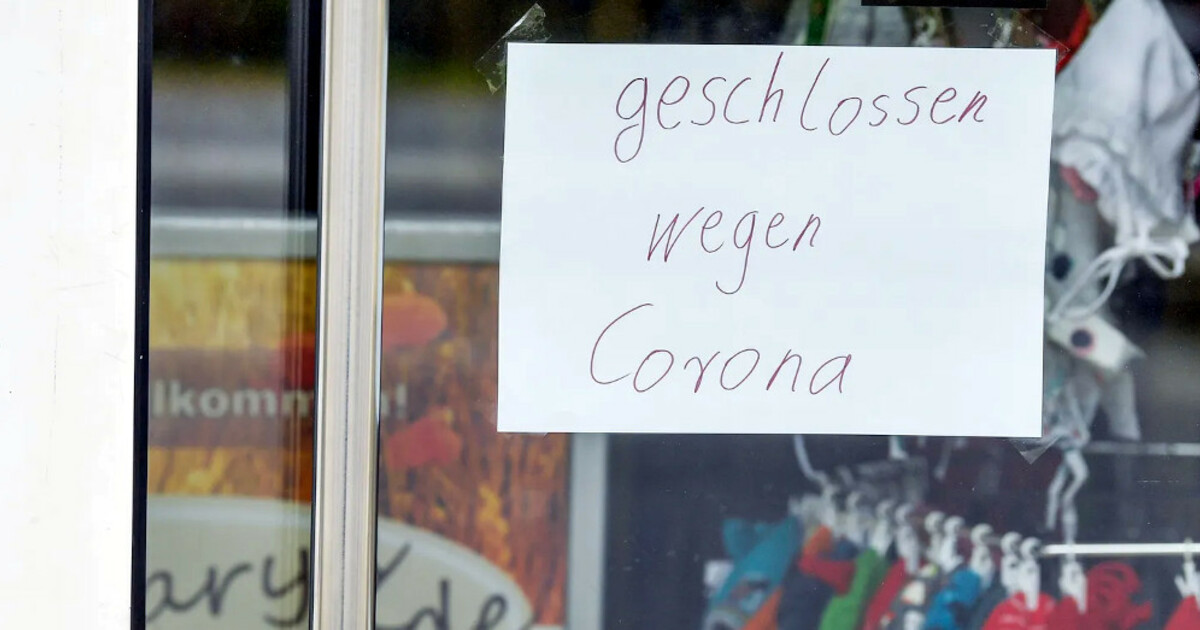 geschlossen
wegen
Corona
lkomm !
ary
de